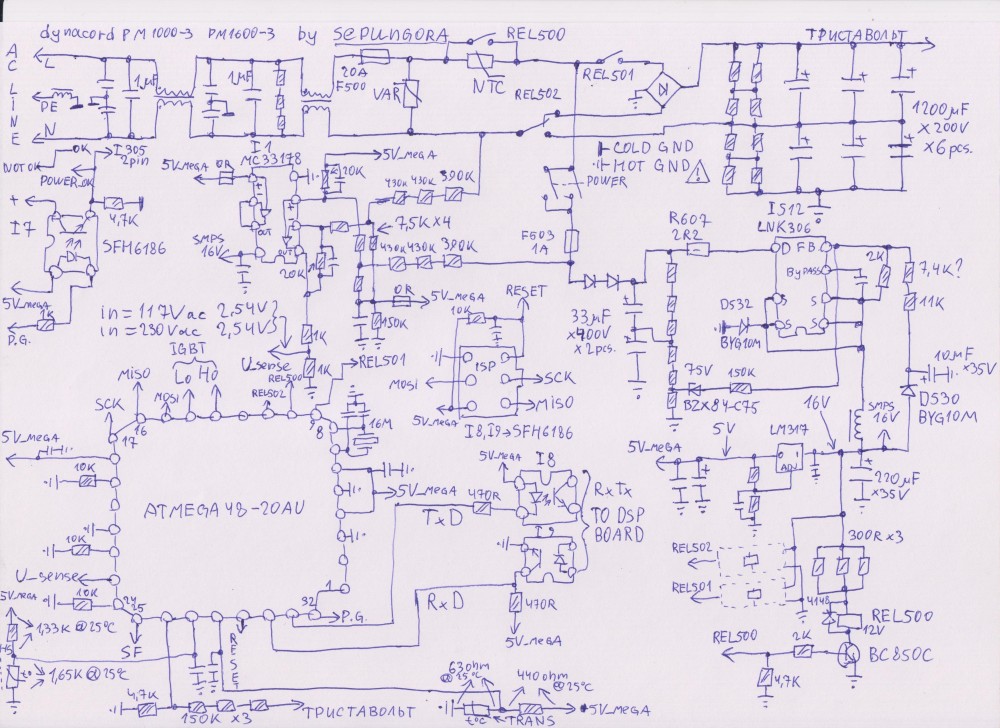 dynacord PM1000-3 PM1600-3 by SEPUNGORA
REL500
ТРИСТАВОЛЬТ
AC LINE
L
1µF
1µF
20A
F500
VAR
NTC
REL501
REL502
PE
N
1200µF
×200V
×6pcs.
COLD GND
HOT GND
POWER
NOT OK
OK
I305
2pin
POWER_OK
I1
MC33178
5V_MEGA
0R
5V_MEGA
20K
430K 430K 390K
7,5K×4
430K 430K 390K
+
I7
4,7K
SFH6186
SMPS
16V
OUT
OUT
20K
F503
1A
R607
2R2
I512
LNK306
D F B
BYPASS
S
S
S
S
2K
7,4K?
11K
5V_MEGA
1K
P.G.
in=117Vac 2,54V
in=230Vac 2,54V
0R
5V_MEGA
150K
RESET
10K
33µF
×400V
×2pcs.
D532
BYG10M
75V
BZX84-C75
150K
10µF
×35V
D530
BYG10M
IGBT
Lo Ho
U_sense
1K
1K
REL501
ISP
MOSI
SCK
MISO
5V_MEGA
I8,I9→SFH6186
16V
SMPS
16V
MISO
SCK
MOSI
REL502
REL500
16
17
9
8
16M
5V_MEGA
5V
LM317
ADJ
220µF
×35V
5V_MEGA
10K
ATMEGA48-20AU
5V_MEGA
TxD
470R
5V_MEGA
I8
I9
RxTx
TO DSP
BOARD
300R×3
REL502
REL501
10K
U_sense
10K
24
25
32
1
P.G.
RxD
470R
5V_MEGA
4148
REL500
12V
REL500
2K
BC850C
4,7K
5V_MEGA
1,33K @25°C
1,65K @25°C
t°
SF
RESET
4,7K
150K ×3
ТРИСТАВОЛЬТ
63ohm
@25°C
440ohm
@25°C
t°C
TRANS
5V_MEGA